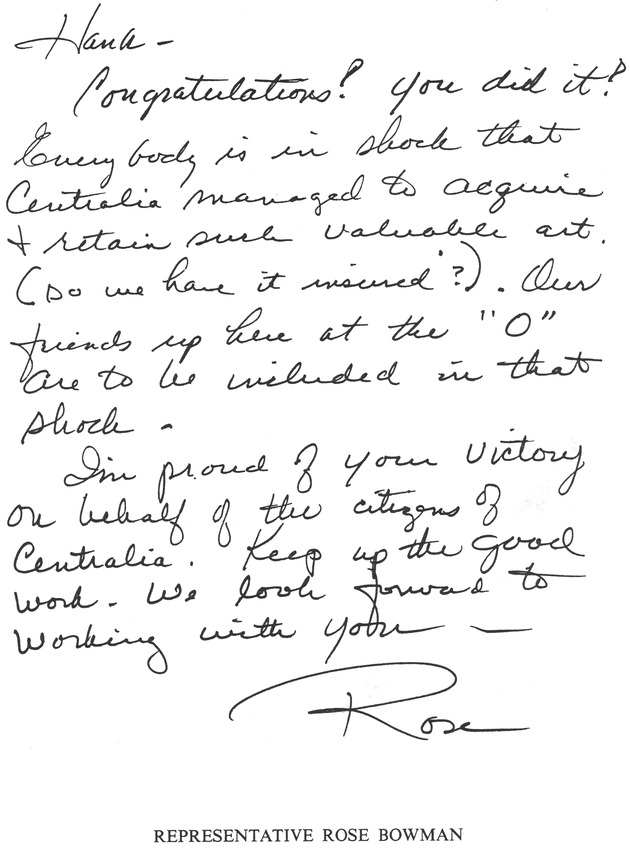 Hank -
Congratulations! You did it!
Everybody is in shock that
Centralia managed to acquire
+ retain such valuable art.
(Do we have it insured?). Our
friends up here at the "O"
are to be included in that
shock -
I'm proud of your victory
on behalf of the citizens of
Centralia. Keep up the good
work. We look forward to
working with you —
Rose
REPRESENTATIVE ROSE BOWMAN